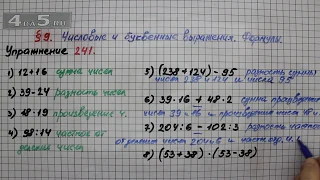 4da5.ru
§ 9. Числовые и буквенные выражения. Формулы.
Упражнение 241.
1) 12+16 сумма чисел
2) 39-24 разность чисел
3) 48·19 произведение ч.
4) 98:14 частное от деления чисел
5) (238+124)-95 разность суммы чисел 238 и 124 и числа 95
6) 39·16 + 48·2 сумма произведения чисел 39 и 16 и произведения чисел 48 и
7) 204:6 - 102:3 разность частного от деления чисел 204 и 6 и частного ч. 1
8) (53+38)·(53-38)